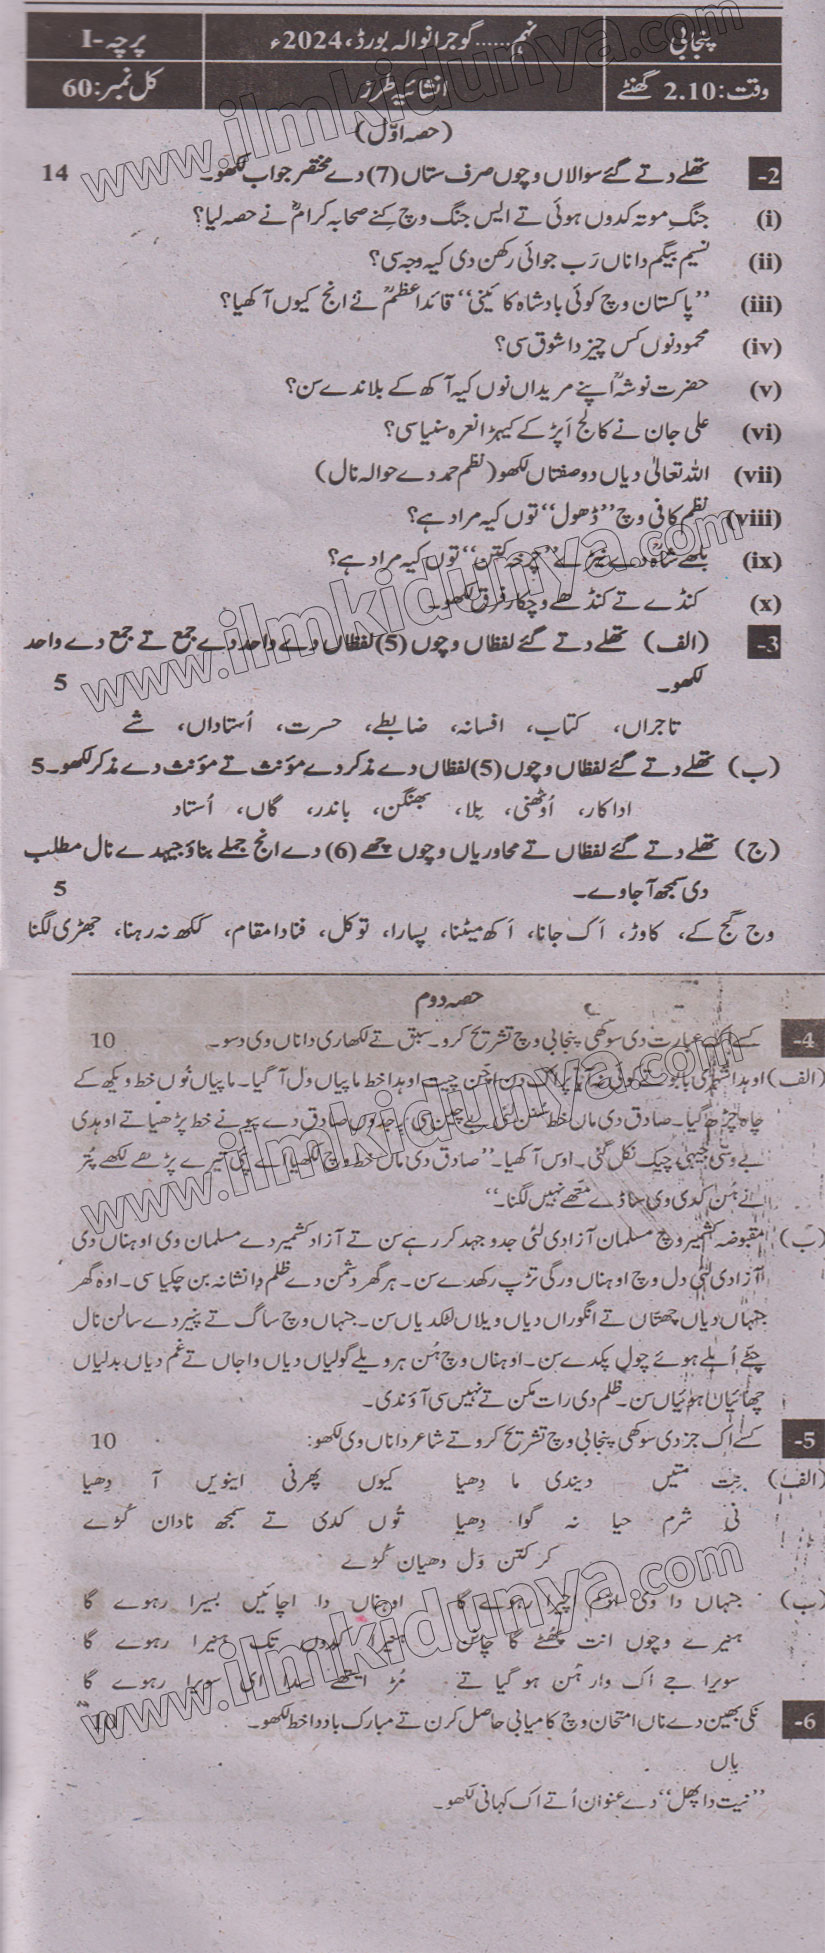 پنجابی نہم......گوجرانوالہ بورڈ، 2024ء پرچہ-I
وقت: 2.10 گھنٹے انشائیہ طرز کل نمبر: 60
(حصہ اوّل)
2- تھلے دتے گئے سوالاں وچوں صرف ستاں (7) دے مختصر جواب لکھو۔ 14
(i) جنگِ موتہ کدوں ہوئی تے ایس جنگ وچ کِنے صحابہ کرامؓ نے حصہ لیا؟
(ii) نسیم بیگم دا ناں رَب جوائی رکھن دی کیہ وجہ سی؟
(iii) ''پاکستان وچ کوئی بادشاہ کائینی'' قائداعظمؒ نے انج کیوں آکھیا؟
(iv) محمود نوں کس چیز دا شوق سی؟
(v) حضرت نوشہؒ اپنے مریداں نوں کیہ آکھ کے بلاندے سن؟
(vi) علی جان نے کالج اَپڑ کے کیہڑا نعرہ سنیا سی؟
(vii) اللہ تعالیٰ دیاں دو صفتاں لکھو (نظم حمد دے حوالہ نال)
(viii) نظم کافی وچ ''ڈھول'' توں کیہ مراد ہے؟
(ix) بلھے شاہؒ دے نیڑے ''چرخہ کتن'' توں کیہ مراد ہے؟
(x) کنڈے تے کنڈھے وچکار فرق لکھو۔
3- (الف) تھلے دتے گئے لفظاں وچوں (5) لفظاں دے واحد دے جمع تے جمع دے واحد
لکھو۔ 5
تاجراں، کتاب، افسانہ، ضابطے، حسرت، اُستاداں، شے
(ب) تھلے دتے گئے لفظاں وچوں (5) لفظاں دے مذکر دے مؤنث تے مؤنث دے مذکر لکھو۔ 5
اداکار، اُوٹھنی، بِلا، بھنگن، باندر، گاں، اُستاد
(ج) تھلے دتے گئے لفظاں تے محاوریاں وچوں چھے (6) دے انج جملے بناؤ جیہدے نال مطلب
دی سمجھ آجاوے۔ 5
وج گج کے، کاوڑ، اَک جانا، اَکھ میٹنا، پسارا، توکل، فنا دا مقام، ککھ نہ رہنا، جھڑی لگنا
حصہ دوم
4- کسے اک عبارت دی سوکھی پنجابی وچ تشریح کرو۔ سبق تے لکھاری دا ناں وی دسو۔ 10
(الف) اوہدا شہری بابو تے کوئی نہ آیا پر اک دن اچن چیت اوہدا خط ماپیاں ول آ گیا۔ ماپیاں نُوں خط ویکھ کے
چاہ چڑھ گیا۔ صادق دی ماں خط سنن لئی بے چین سی پر جدوں صادق دے پیو نے خط پڑھیا تے اوہدی
بے وسی جیہی چیک نکل گئی۔ اوس آکھیا۔ ''صادق دی ماں خط وچ لکھیا اے پئی تیرے پڑھے لکھے پتر
نے ہُن کدی وی ساڈے متھے نہیں لگنا۔''
(ب) مقبوضہ کشمیر وچ مسلمان آزادی لئی جدوجہد کر رہے سن تے آزاد کشمیر دے مسلمان وی اوہناں دی
آزادی لئی دل وچ اوہناں ورگی تڑپ رکھدے سن۔ ہر گھر دشمن دے ظلم دا نشانہ بن چکیا سی۔ اوہ گھر
جہناں دیاں چھتاں تے انگوراں دیاں ویلاں لٹکدیاں سن۔ جہاں وچ ساگ تے پنیر دے سالن نال
چٹے اُبلے ہوئے چول پکدے سن۔ اوہناں وچ ہُن ہر ویلے گولیاں دیاں واجاں تے غم دیاں بدلیاں
چھائیاں ہوئیاں سن۔ ظلم دی رات مکن تے نہیں سی آؤندی۔
5- کسے اک جز دی سوکھی پنجابی وچ تشریح کرو تے شاعر دا ناں وی لکھو: 10
(الف) نِت متیں دیندی ما دِھیا کیوں پھرنی اینویں آ دِھیا
نی شرم حیا نہ گوا دِھیا تُوں کدی تے سمجھ نادان کُڑے
کر کتن وَل دھیان کُڑے
(ب) جہناں دا وی اُچیرا رہوے گا اوہناں دا اچائیں بسیرا رہوے گا
ہنیرے وچوں انت پھُٹے گا چانن ہنیرا کدوں تک ہنیرا رہوے گا
سویرا جے اک وار ہُن ہو گیا تے مُڑ ایتھے سدا ای سویرا رہوے گا
6- نکی بھین دے ناں امتحان وچ کامیابی حاصل کرن تے مبارک باد دا خط لکھو۔ 10
یاں
''نیت دا پھل'' دے عنوان اُتے اک کہانی لکھو۔
www.ilmkidunya.com
www.ilmkidunya.com
www.ilmkidunya.com
www.ilmkidunya.com